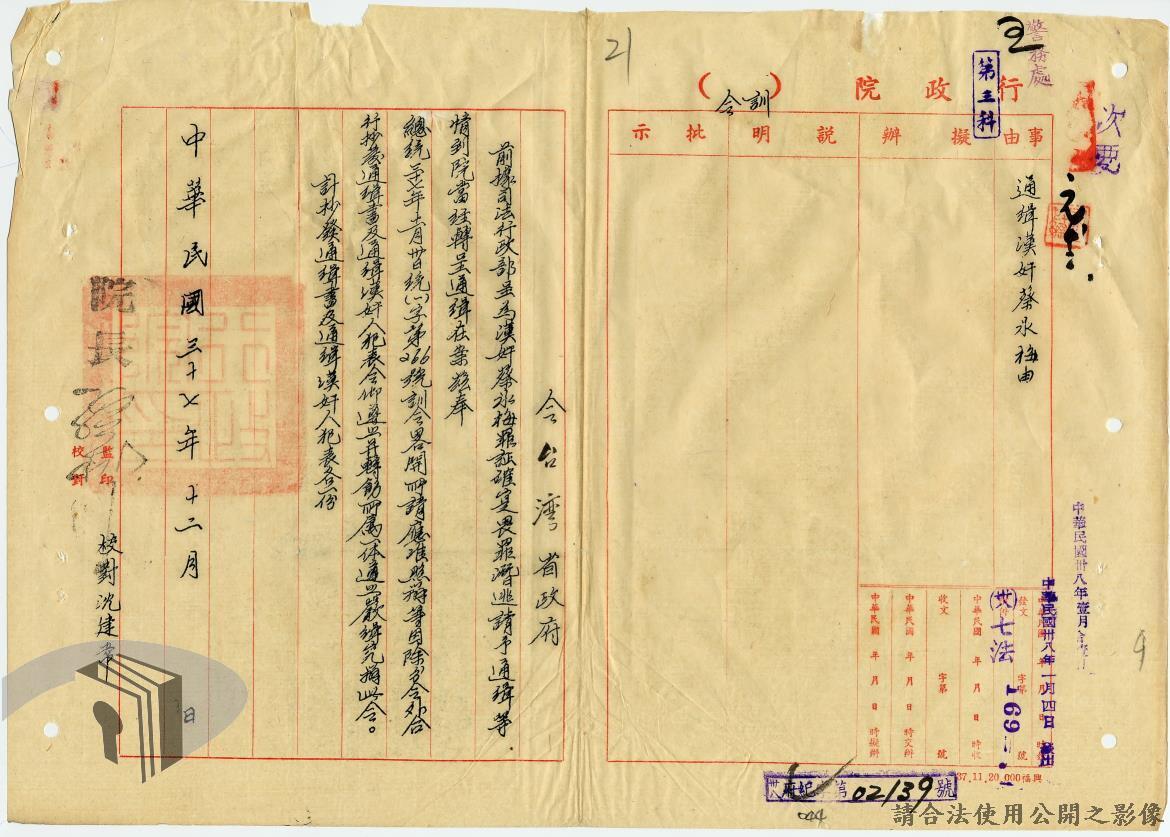 21
警務處
次要
第三科
行政院（訓令）
事由擬辦說明批示
通緝漢奸蔡永梅由
令台湾省政府
前據司法行政部呈為漢奸蔡永梅罪証確寔畏罪潛逃請予通緝等
情到院當經轉呈通緝在案茲奉
總統
統(一)字第266號訓令畧開所請應准照辦等因除分令外合
行抄發通緝書及通緝漢奸人犯表令仰遵照并轉飭所屬一体遵照嚴緝究辦此令。
計抄發通緝書及通緝漢奸人犯表各一份
院長
中華民國三十七年十二月
日
監印
校對
校對沈建章
中華民國卅八年壹月
中華民國卅八年一月四日
發文 字第 號
卅七法
169
中華民國 年 月 日 時收
收文 字第 號
中華民國 年 月 日 時交辦
中華民國 年 月 日 時擬辦
37.11.20,000.福興
第02139號
044
9
請合法使用公開之影像